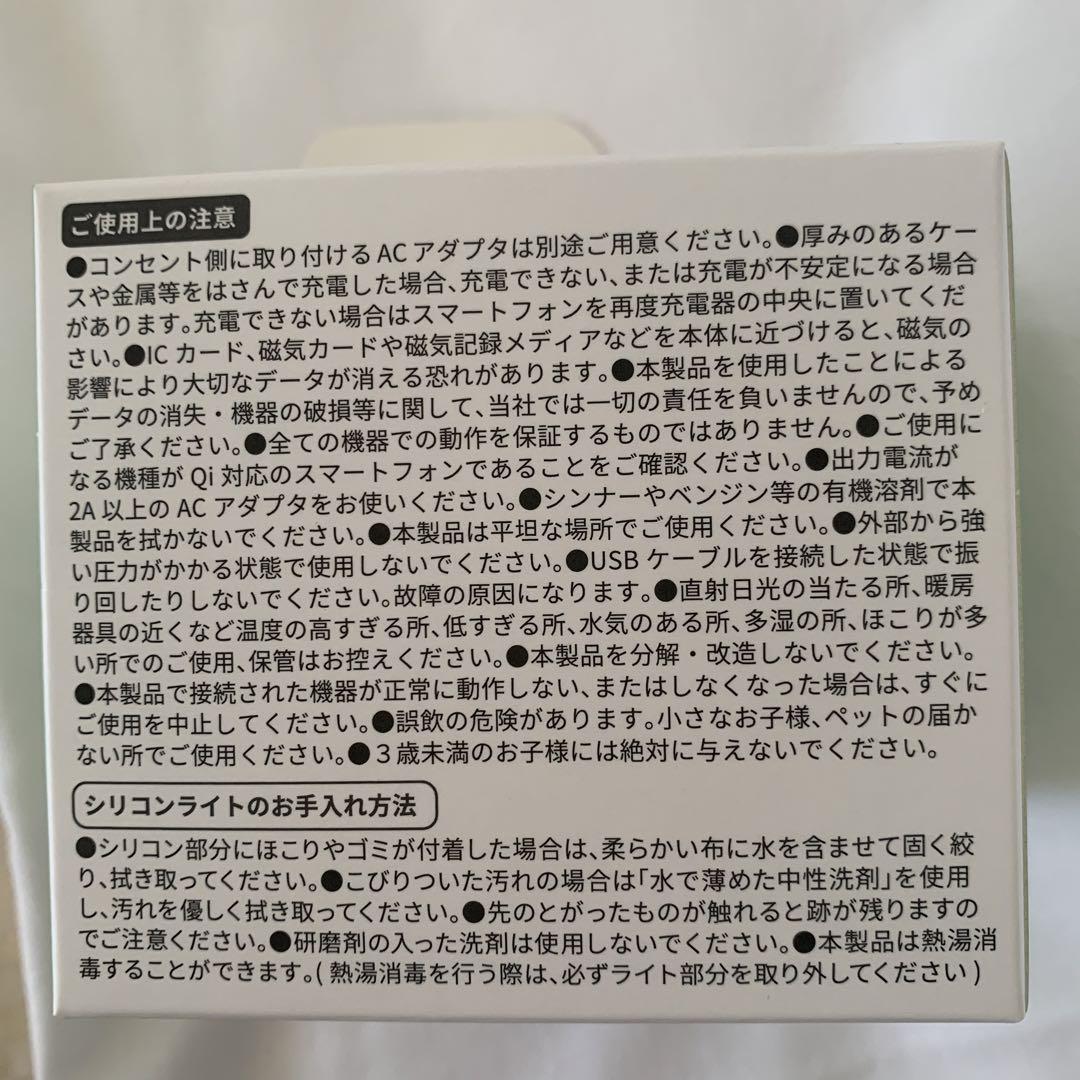 ご使用上の注意
●コンセント側に取り付ける AC アダプタは別途ご用意ください。●厚みのあるケー
スや金属等をはさんで充電した場合、充電できない、または充電が不安定になる場合
があります。充電できない場合はスマートフォンを再度充電器の中央に置いてくだ
さい。●IC カード、磁気カードや磁気記録メディアなどを本体に近づけると、磁気の
影響により大切なデータが消える恐れがあります。●本製品を使用したことによる
データの消失・機器の破損等に関して、当社では一切の責任を負いませんので、予め
ご了承ください。●全ての機器での動作を保証するものではありません。●ご使用に
なる機種が Qi 対応のスマートフォンであることをご確認ください。●出力電流が
2A 以上の AC アダプタをお使いください。●シンナーやベンジン等の有機溶剤で本
製品を拭かないでください。●本製品は平坦な場所でご使用ください。●外部から強
い圧力がかかる状態で使用しないでください。●USB ケーブルを接続した状態で振
り回したりしないでください。故障の原因になります。●直射日光の当たる所、暖房
器具の近くなど温度の高すぎる所、低すぎる所、水気のある所、多湿の所、ほこりが多
い所でのご使用、保管はお控えください。●本製品を分解・改造しないでください。
●本製品で接続された機器が正常に動作しない、またはしなくなった場合は、すぐに
ご使用を中止してください。●誤飲の危険があります。小さなお子様、ペットの届か
ない所でご使用ください。●３歳未満のお子様には絶対に与えないでください。
シリコンライトのお手入れ方法
●シリコン部分にほこりやゴミが付着した場合は、柔らかい布に水を含ませて固く絞
り、拭き取ってください。●こびりついた汚れの場合は「水で薄めた中性洗剤」を使用
し、汚れを優しく拭き取ってください。●先のとがったものが触れると跡が残りますの
でご注意ください。●研磨剤の入った洗剤は使用しないでください。●本製品は熱湯消
毒することができます。( 熱湯消毒を行う際は、必ずライト部分を取り外してください )